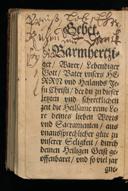 Gebet.
Barmhertzi-
ger/ Vater/ Lebendiger
Gott/ Vater unsers HE-
RRN und Heilands Je-
su Christi/ der du zu dieser
letzten und schrecklichen
zeit die Heilsame reine Le-
re deines lieben Worts
und Sacramenten/ aus
unaussprechlicher güte zu
unserer Seligkeit/ durch
deinen Heiligen Geist ge-
offenbaret/ und so viel jar